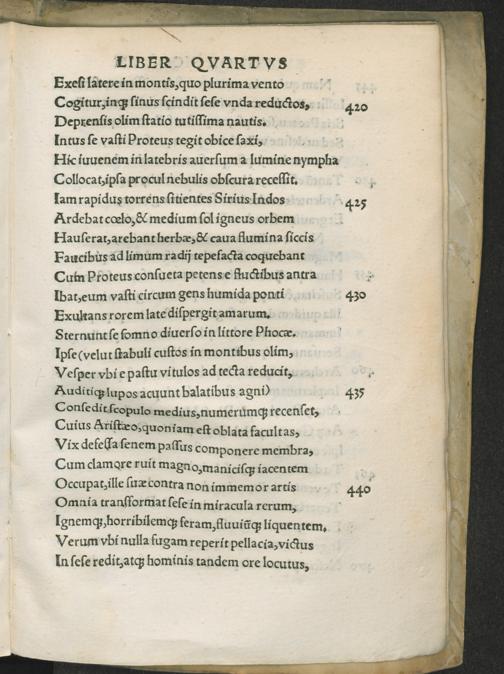 LIBER QVARTVS
Exesi latere in montis, quo plurima vento
Cogitur, inq; sinus scindit sese vnda reductos, 420
Deprensis olim statio tutissima nautis.
Intus se vasti Proteus tegit obice saxi,
Hic iuuenem in latebris auersum a lumine nympha
Collocat, ipsa procul nebulis obscura recessit.
Iam rapidus torrens sitientes Sirius Indos 425
Ardebat cœlo, & medium sol igneus orbem
Hauserat, arebant herbæ, & caua flumina siccis
Faucibus ad limum radij tepefacta coquebant
Cum Proteus consueta petens e fluctibus antra
Ibat, eum vasti circum gens humida ponti 430
Exultans rorem late dispergit amarum.
Sternunt se somno diuerso in littore Phocæ.
Ipse (velut stabuli custos in montibus olim,
Vesper vbi e pastu vitulos ad tecta reducit,
Auditiq; lupos acuunt balatibus agni) 435
Consedit scopulo medius, numerumq; recenset,
Cuius Aristæo, quoniam est oblata facultas,
Vix defessa senem passus componere membra,
Cum clamore ruit magno, manicisq; iacentem
Occupat, ille suæ contra non immemor artis 440
Omnia transformat sese in miracula rerum,
Ignemq;, horribilemq; feram, fluuiūq; liquentem.
Verum vbi nulla fugam reperit pellacia, victus
In sese redit, atq; hominis tandem ore locutus,